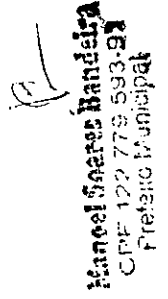 Manoel Soares Bandeira
CPF 122 779 593-91
Prefeito Municipal